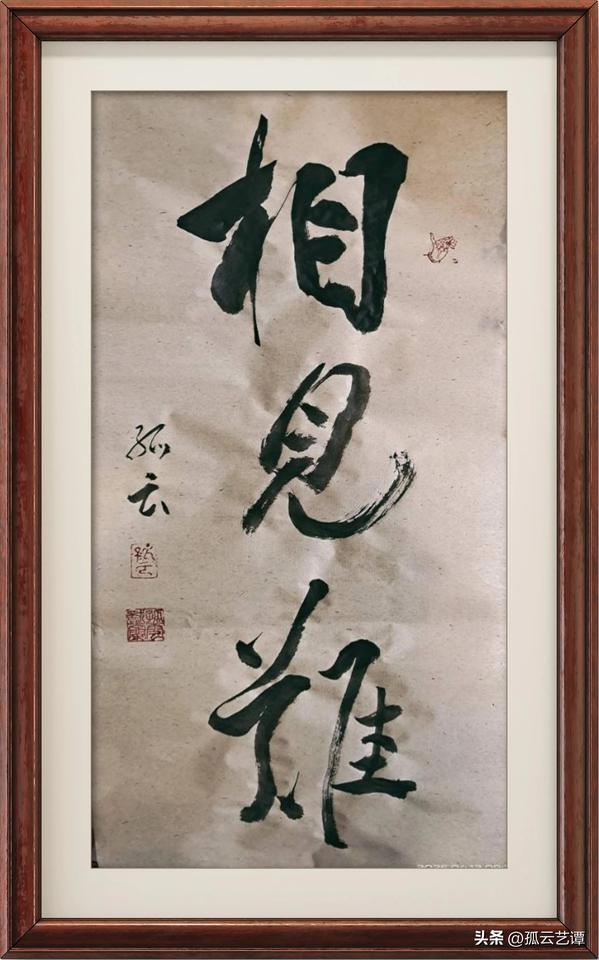 相見難
孤云
头条 @孤云艺谭